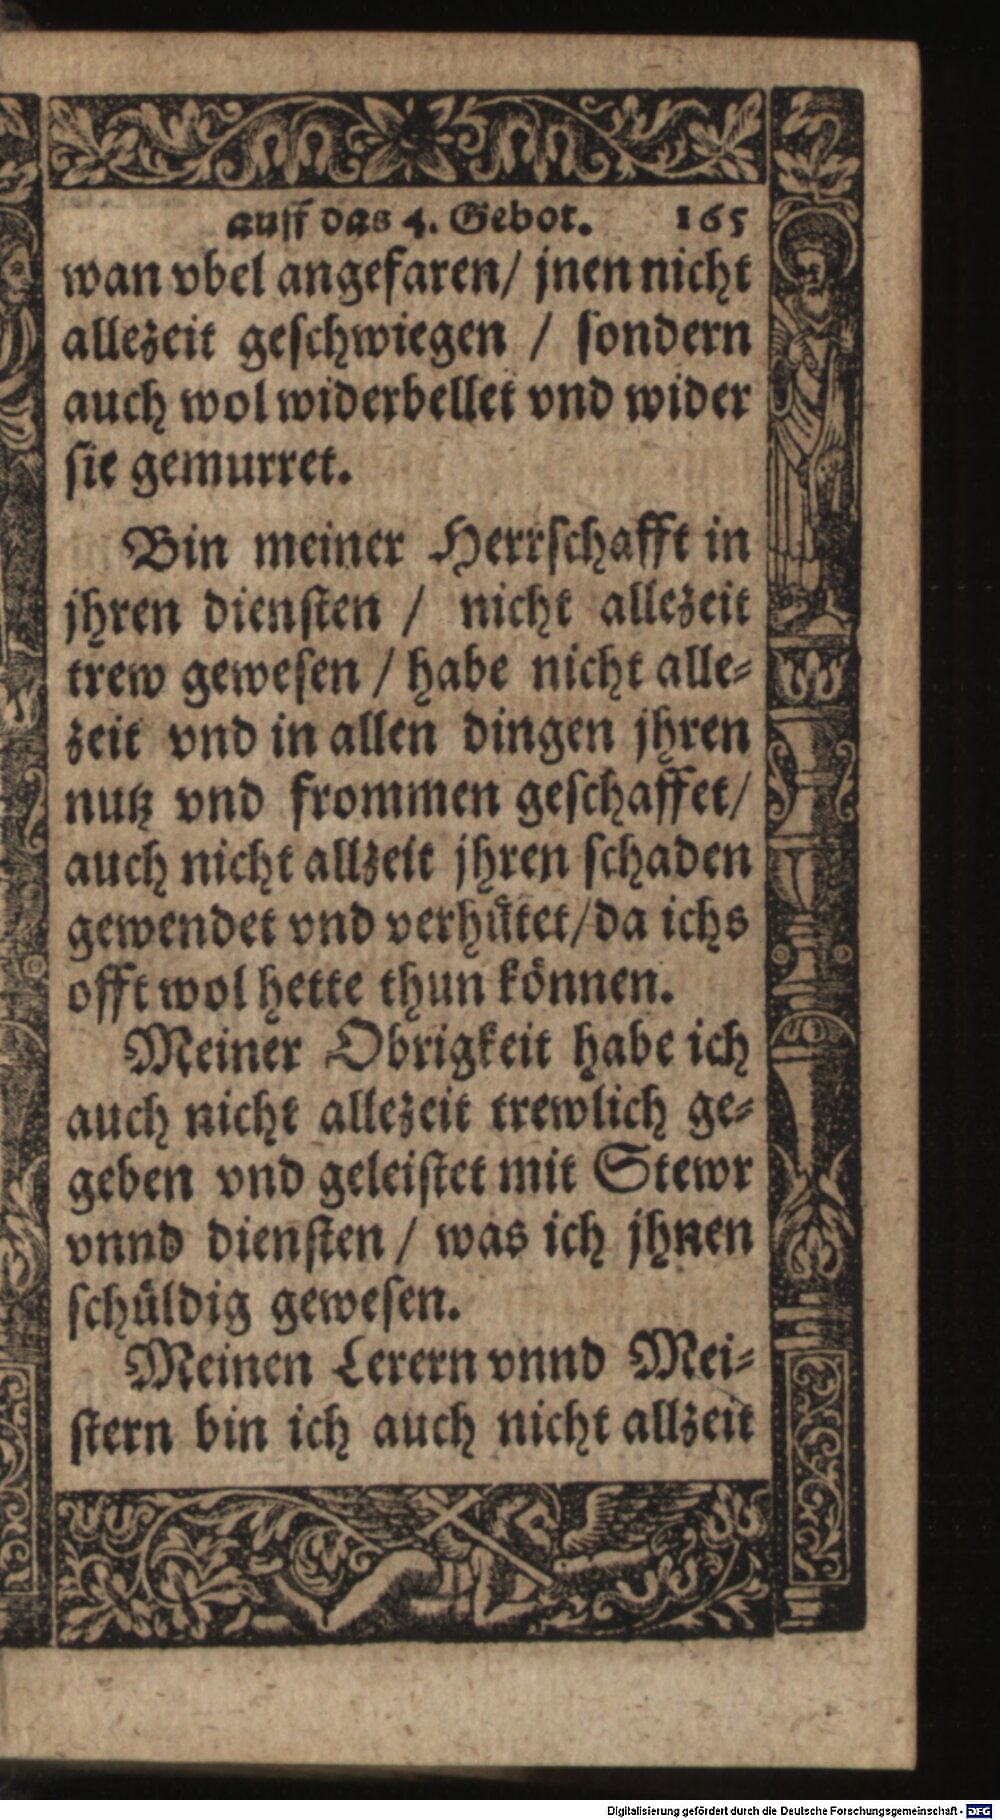 auff das 4. Gebot. 165
wan vbel angefaren/ jnen nicht
allezeit geschwiegen / sondern
auch wol widerbellet vnd wider
sie gemurret.
Bin meiner Herrschafft in
jhren diensten / nicht allezeit
trew gewesen / habe nicht alle-
zeit vnd in allen dingen jhren
nutz vnd frommen geschaffet/
auch nicht allzeit jhren schaden
gewendet vnd verhütet/da ichs
offt wol hette thun können.
Meiner Obrigkeit habe ich
auch nicht allezeit trewlich ge-
geben vnd geleistet mit Stewr
vnnd diensten / was ich jhnen
schüldig gewesen.
Meinen Lerern vnnd Mei-
stern bin ich auch nicht allzeit
Digitalisierung gefördert durch die Deutsche Forschungsgemeinschaft - DFG